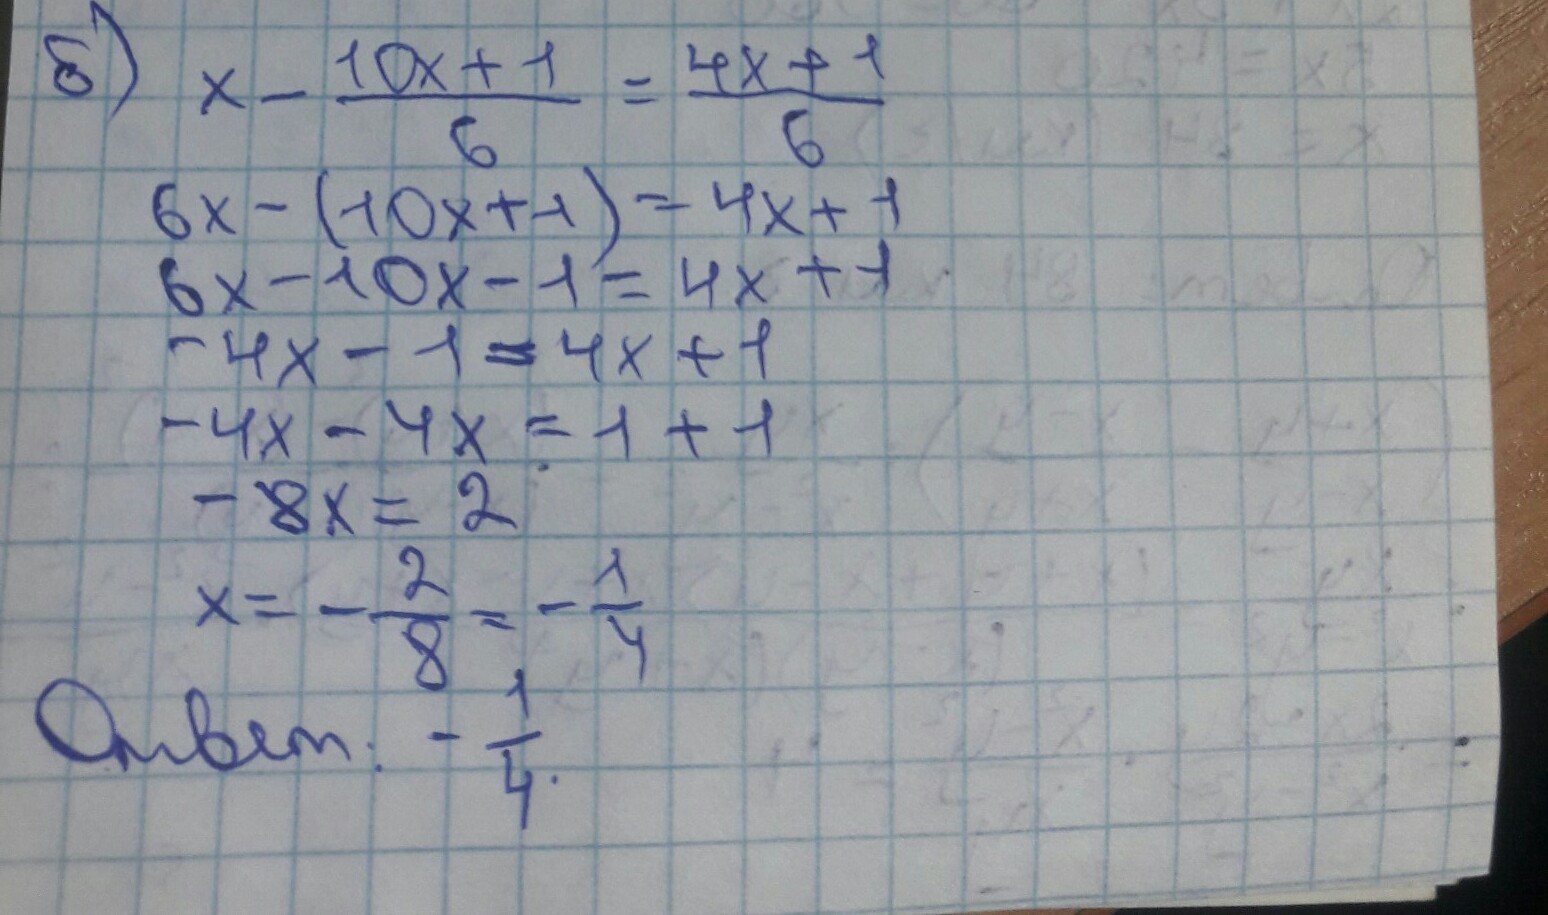 б) x - \frac{10x+1}{6} = \frac{4x+1}{6}
6x - (10x+1) = 4x+1
6x - 10x - 1 = 4x + 1
-4x - 1 = 4x + 1
-4x - 4x = 1 + 1
-8x = 2
x = -\frac{2}{8} = -\frac{1}{4}
Ответ: -\frac{1}{4}.